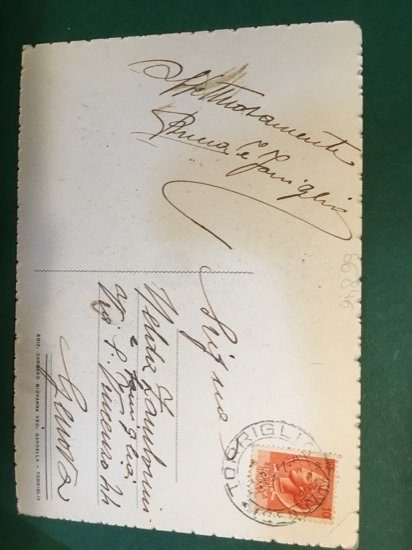 Affettuosamente
Bruna e famiglia
Sig.na
Zamboni
e famiglia
Via S. Vincenzo
Genova
TORRIGLIA
EDIZ. GARBARINO GIOVANNA VED. GARDELLA - TORRIGLIA